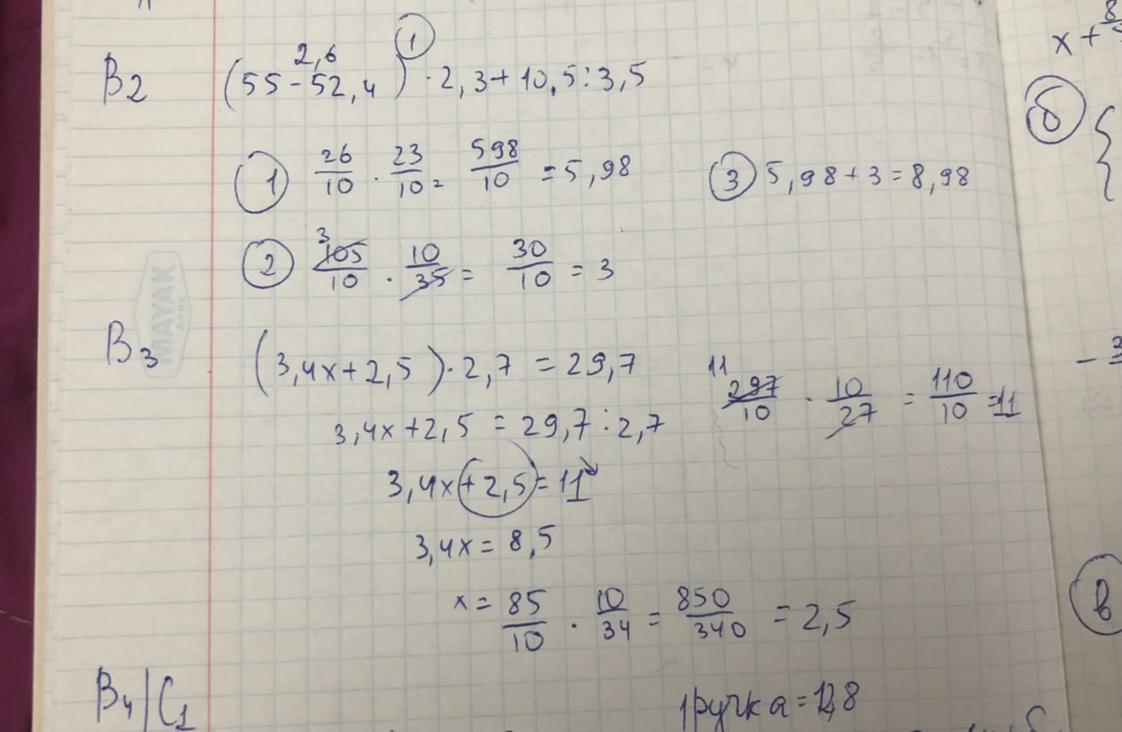 B2 (55-52,4)·2,3+10,5:3,5
2,6
①
① 26/10 · 23/10 = 598/10 = 5,98
③ 5,98+3=8,98
② 105/10 · 10/35 = 30/10 = 3
3
MAYAK
B3 (3,4x+2,5)·2,7 = 29,7
3,4x+2,5 = 29,7:2,7
3,4x+2,5=11
3,4x = 8,5
x = 85/10 · 10/34 = 850/340 = 2,5
11
297/10 · 10/27 = 110/10 = 11
B4/C1
1 ручка = 12,8
x+
8
б
{
-
в